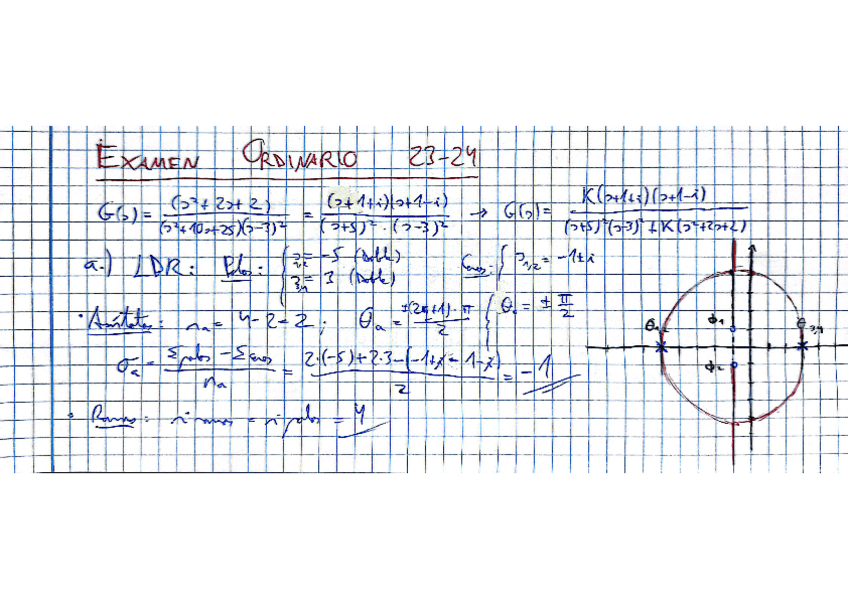 EXAMEN ORDINARIO 23-24
G(s) = (s²+2s+2) / (s²+10s+25)(s-3)² = (s+1+i)(s+1-i) / (s+5)²·(s-3)² → G(s) = K(s+1+i)(s+1-i) / (s+5)²(s-3)²+K(s²+2s+2)
a.) LDR: Polos: { s₁,₂ = -5 (Doble) s₃,₄ = 3 (Doble) Ceros: { s₁,₂ = -1±i
· Asíntotas: nₐ = 4-2=2; θₐ = ±(2q+1)·π / 2 { θₐ = ± π/2
σₐ = Σpolos - Σceros / nₐ = 2·(-5)+2·3-(-1+i-1-i) / 2 = -1
· Ramas: nº ramas = nº polos = 4
θ₁ φ₁ θ₃,₄
φ₂